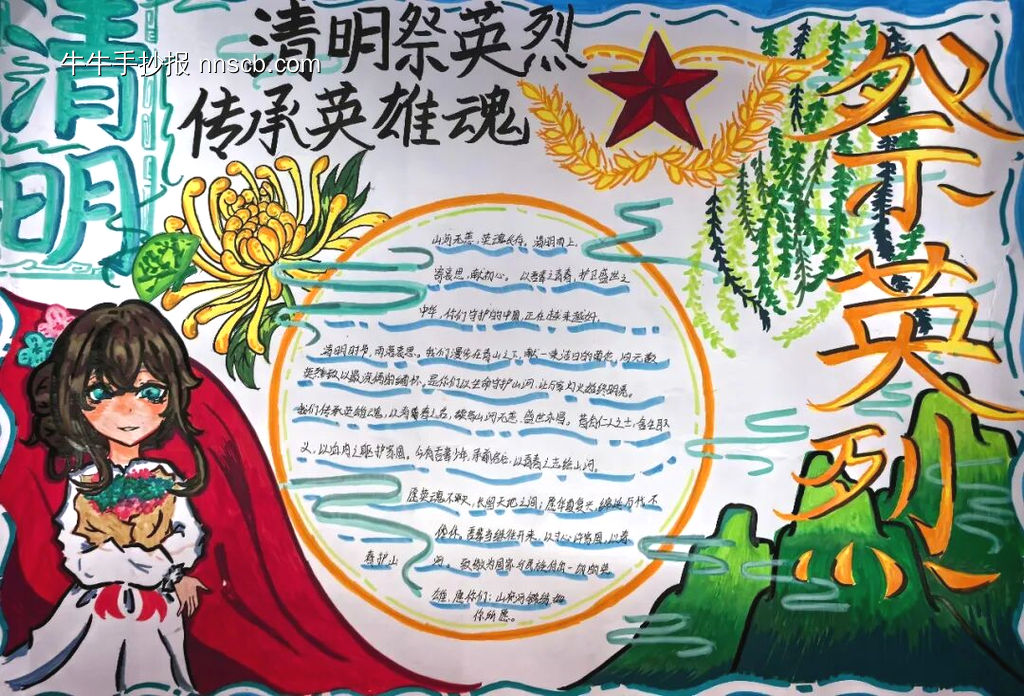 清明
牛牛手抄报 nnscb.com
清明祭英烈
传承英雄魂
祭英烈
山河无恙，英魂长存。清明时上，
寄哀思，献初心。以吾辈之青春，护卫盛世之
中华，你们守护的中国，正在越来越好。
清明时节，雨落哀思。我们漫步在青山之下，献一束洁白的菊花，向元勋
英烈致以最深情的缅怀，是你们以生命守护山河，让万家灯火始终明亮。
我们传承英雄之魂，以青春之名，续写山河无恙，盛世永昌。昔有仁人志士，舍生取
义，以血肉之躯护家国，今有吾辈少年，承前启后，以青春之志绘山河。
愿英魂不朽，长留天地之间；愿华夏复兴，绵延万代不
休，吾辈当继往开来，以寸心许家国，以青
春护山河。致敬为国家与民族付出一切的英
雄，愿你们：山河锦绣，如
你所愿。